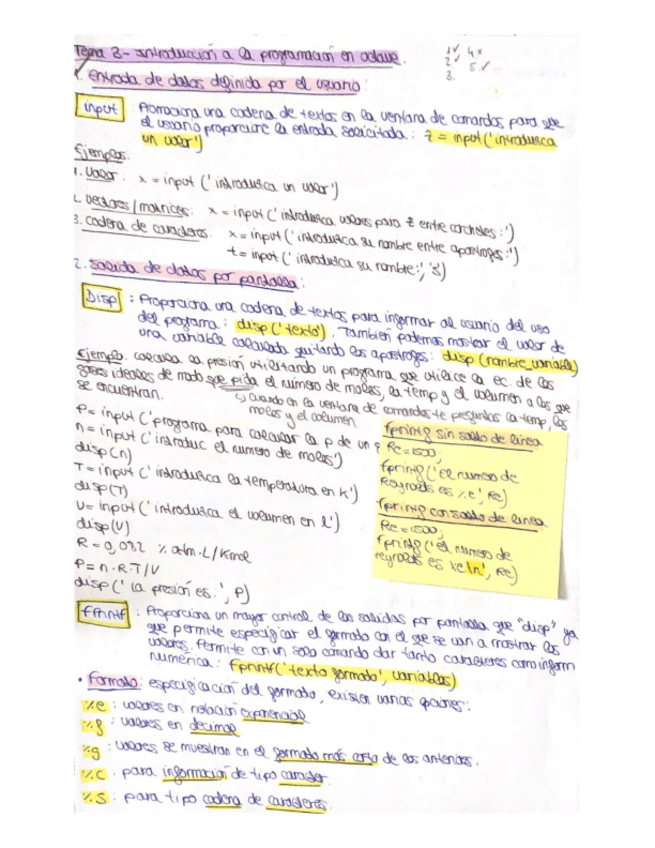 Tema 3 - Introducción a la programación en octave.
1✓ 4×
2✓ 5✓
3.
1. entrada de datos definida por el usuario:
input Promociona una cadena de textos en la ventana de comandos para que
el usuario proporcione la entrada solicitada: z = input('introduzca
un valor')
Ejemplos.
1. Valor. x = input ('introduzca un valor')
2. Vectores/matrices: x = input ('introduzca valores para z entre corchetes:')
3. Cadena de caracteres: x = input ('introduzca su nombre entre apostrofes:')
t = input ('introduzca su nombre:', 's')
2. Salida de datos por pantalla:
Disp : Proporciona una cadena de textos para informar al usuario del uso
del programa: disp('texto'). También podemos mostrar el valor de
una variable calculada quitando los apostrofes: disp(nombre_variable)
Ejemplo: calcula la presión utilizando un programa que utilice la ec. de los
gases ideales de modo que pida el número de moles, la temp y el volumen a los que
se encuentran.
↳ cuando en la ventana de comandos te preguntas la temp, los
moles y el volumen.
P = input ('programa para calcular la p de un g
n = input ('introduc el numero de moles')
disp(n)
T = input ('introduzca la temperatura en K')
disp(T)
V = input ('introduzca el volumen en l')
disp(V)
R = 0,082 % atm·L/Kmol
P = n·R·T/V
disp('La presión es.', P)
fprintf sin salto de línea
Re = 1500;
fprintf('el numero de
Reynolds es %e', Re)
fprintf con salto de linea
Re = 1500;
fprintf('el numero de
reynolds es %e\n', Re)
fprintf : Proporciona un mayor control de las salidas por pantalla que "disp" ya
que permite especificar el formato con el que se van a mostrar los
valores. Permite con un solo comando dar tanto caracteres como inform
numérica: fprintf('texto formato', variables)
• Formato: especificación del formato, existen varias opciones:
%e : valores en notación exponencial
%f : valores en decimal
%g : valores se muestran en el formato más corto de los anteriores.
%c : para información de tipo caracter.
%s : para tipo cadena de caracteres.